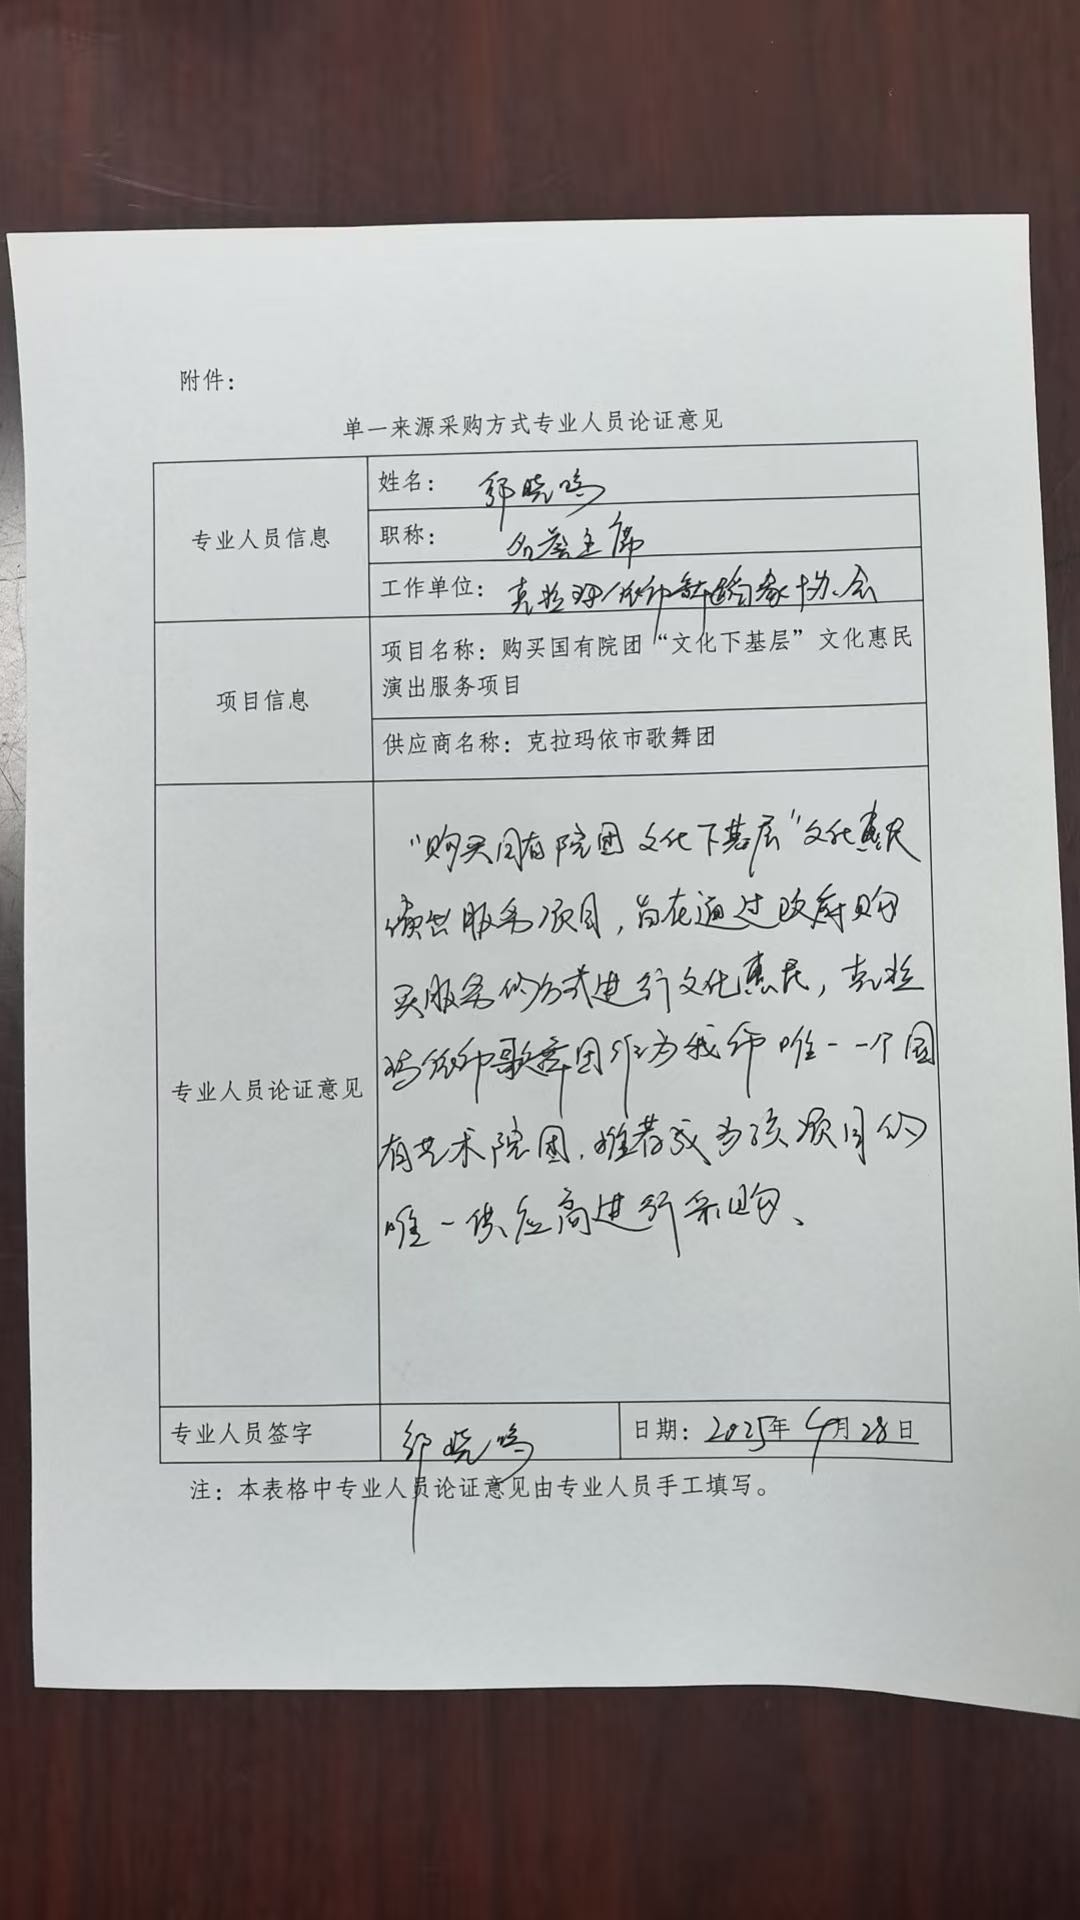 附件：
单一来源采购方式专业人员论证意见
专业人员信息
姓名： 邹晓鸣
职称： 名誉主席
工作单位： 克拉玛依市舞蹈家协会
项目信息
项目名称：购买国有院团“文化下基层”文化惠民
演出服务项目
供应商名称：克拉玛依市歌舞团
专业人员论证意见
“购买国有院团文化下基层”文化惠民
演出服务项目，旨在通过政府购
买服务的方式进行文化惠民，克拉
玛依市歌舞团作为我市唯一一个国
有艺术院团，推荐成为该项目的
唯一供应商进行采购、
专业人员签字
邹晓鸣
日期：2025年4月28日
注：本表格中专业人员论证意见由专业人员手工填写。